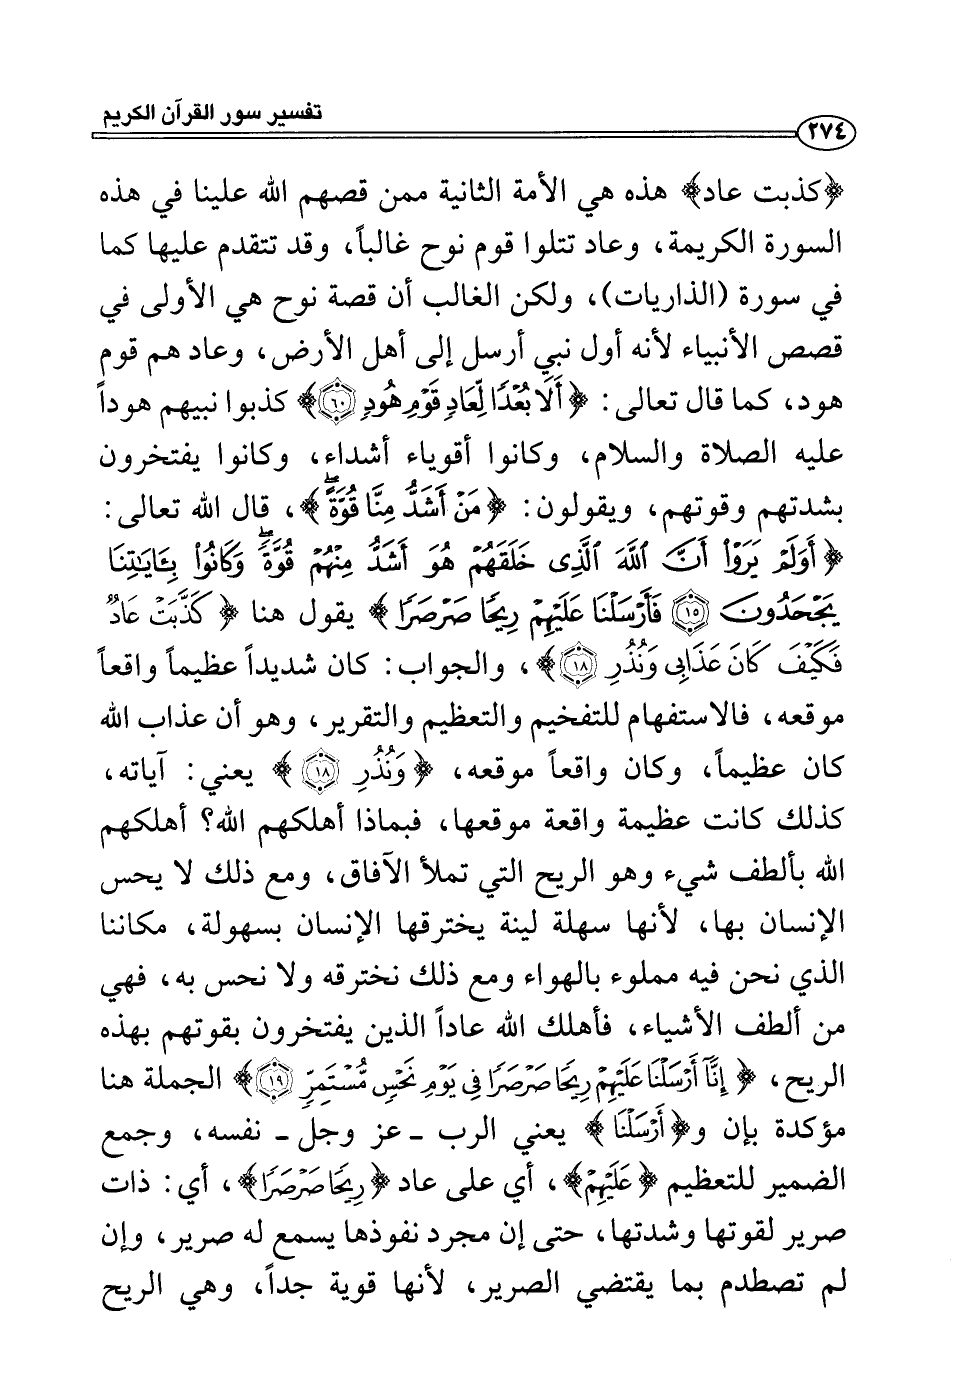 تفسير سور القرآن الكريم
٢٧٤
﴿كذبت عاد﴾ هذه هي الأمة الثانية ممن قصهم الله علينا في هذه
السورة الكريمة، وعاد تتلوا قوم نوح غالباً، وقد تتقدم عليها كما
في سورة (الذاريات)، ولكن الغالب أن قصة نوح هي الأولى في
قصص الأنبياء لأنه أول نبي أرسل إلى أهل الأرض، وعاد هم قوم
هود، كما قال تعالى: ﴿أَلَا بُعْدًا لِّعَادٍ قَوْمِ هُودٍ ٦٠﴾ كذبوا نبيهم هوداً
عليه الصلاة والسلام، وكانوا أقوياء أشداء، وكانوا يفتخرون
بشدتهم وقوتهم، ويقولون: ﴿مَنْ أَشَدُّ مِنَّا قُوَّةً ۖ﴾، قال الله تعالى:
﴿أَوَلَمْ يَرَوْا أَنَّ ٱللَّهَ ٱلَّذِى خَلَقَهُمْ هُوَ أَشَدُّ مِنْهُمْ قُوَّةً ۖ وَكَانُوا بِـَٔايَٰتِنَا
يَجْحَدُونَ ١٥ فَأَرْسَلْنَا عَلَيْهِمْ رِيحًا صَرْصَرًا﴾ يقول هنا ﴿كَذَّبَتْ عَادٌ
فَكَيْفَ كَانَ عَذَابِى وَنُذُرِ ١٨﴾، والجواب: كان شديداً عظيماً واقعاً
موقعه، فالاستفهام للتفخيم والتعظيم والتقرير، وهو أن عذاب الله
كان عظيماً، وكان واقعاً موقعه، ﴿وَنُذُرِ ١٨﴾ يعني: آياته،
كذلك كانت عظيمة واقعة موقعها، فبماذا أهلكهم الله؟ أهلكهم
الله بألطف شيء وهو الريح التي تملأ الآفاق، ومع ذلك لا يحس
الإنسان بها، لأنها سهلة لينة يخترقها الإنسان بسهولة، مكاننا
الذي نحن فيه مملوء بالهواء ومع ذلك نخترقه ولا نحس به، فهي
من ألطف الأشياء، فأهلك الله عاداً الذين يفتخرون بقوتهم بهذه
الريح، ﴿إِنَّآ أَرْسَلْنَا عَلَيْهِمْ رِيحًا صَرْصَرًا فِى يَوْمِ نَحْسٍ مُّسْتَمِرٍّ ١٩﴾ الجملة هنا
مؤكدة بإن و﴿أَرْسَلْنَا﴾ يعني الرب ـ عز وجل ـ نفسه، وجمع
الضمير للتعظيم ﴿عَلَيْهِمْ﴾، أي على عاد ﴿رِيحًا صَرْصَرًا﴾، أي: ذات
صرير لقوتها وشدتها، حتى إن مجرد نفوذها يسمع له صرير، وإن
لم تصطدم بما يقتضي الصرير، لأنها قوية جداً، وهي الريح